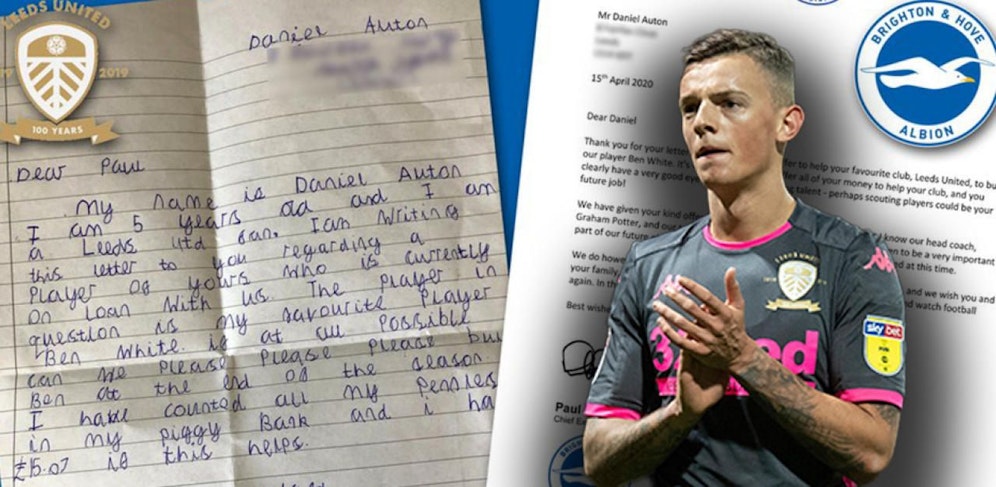 LEEDS UNITED
2019
100 YEARS
Daniel Auton
Dear Paul
My name is Daniel Auton
I am 5 years old and I am
a Leeds Utd fan. I am writing
this letter to you regarding a
player of yours who is currently
on loan with us. The player in
question is my favourite player
Ben White. if at all possible
can we please please please bu
Ben at the end of the season
I have counted all my pennies
in my piggy Bank and i ha
£15.07 if this helps.
Mr Daniel Auton
15th April 2020
Dear Daniel
Thank you for your lette offer to help your favourite club, Leeds United, to bu
our player Ben White. It's offer all of your money to help your club, and you
clearly have a very good eye talent - perhaps scouting players could be your
future job!
We have given your kind offe know our head coach,
Graham Potter, and our to be a very important
part of our future at this time.
We do howe and we wish you and
your family, watch football
again. In th
Best wishe
Paul
Chief Ex
BRIGHTON & HOVE
ALBION
LEEDS UNITED
32Red
kappa
sky bet
EFL